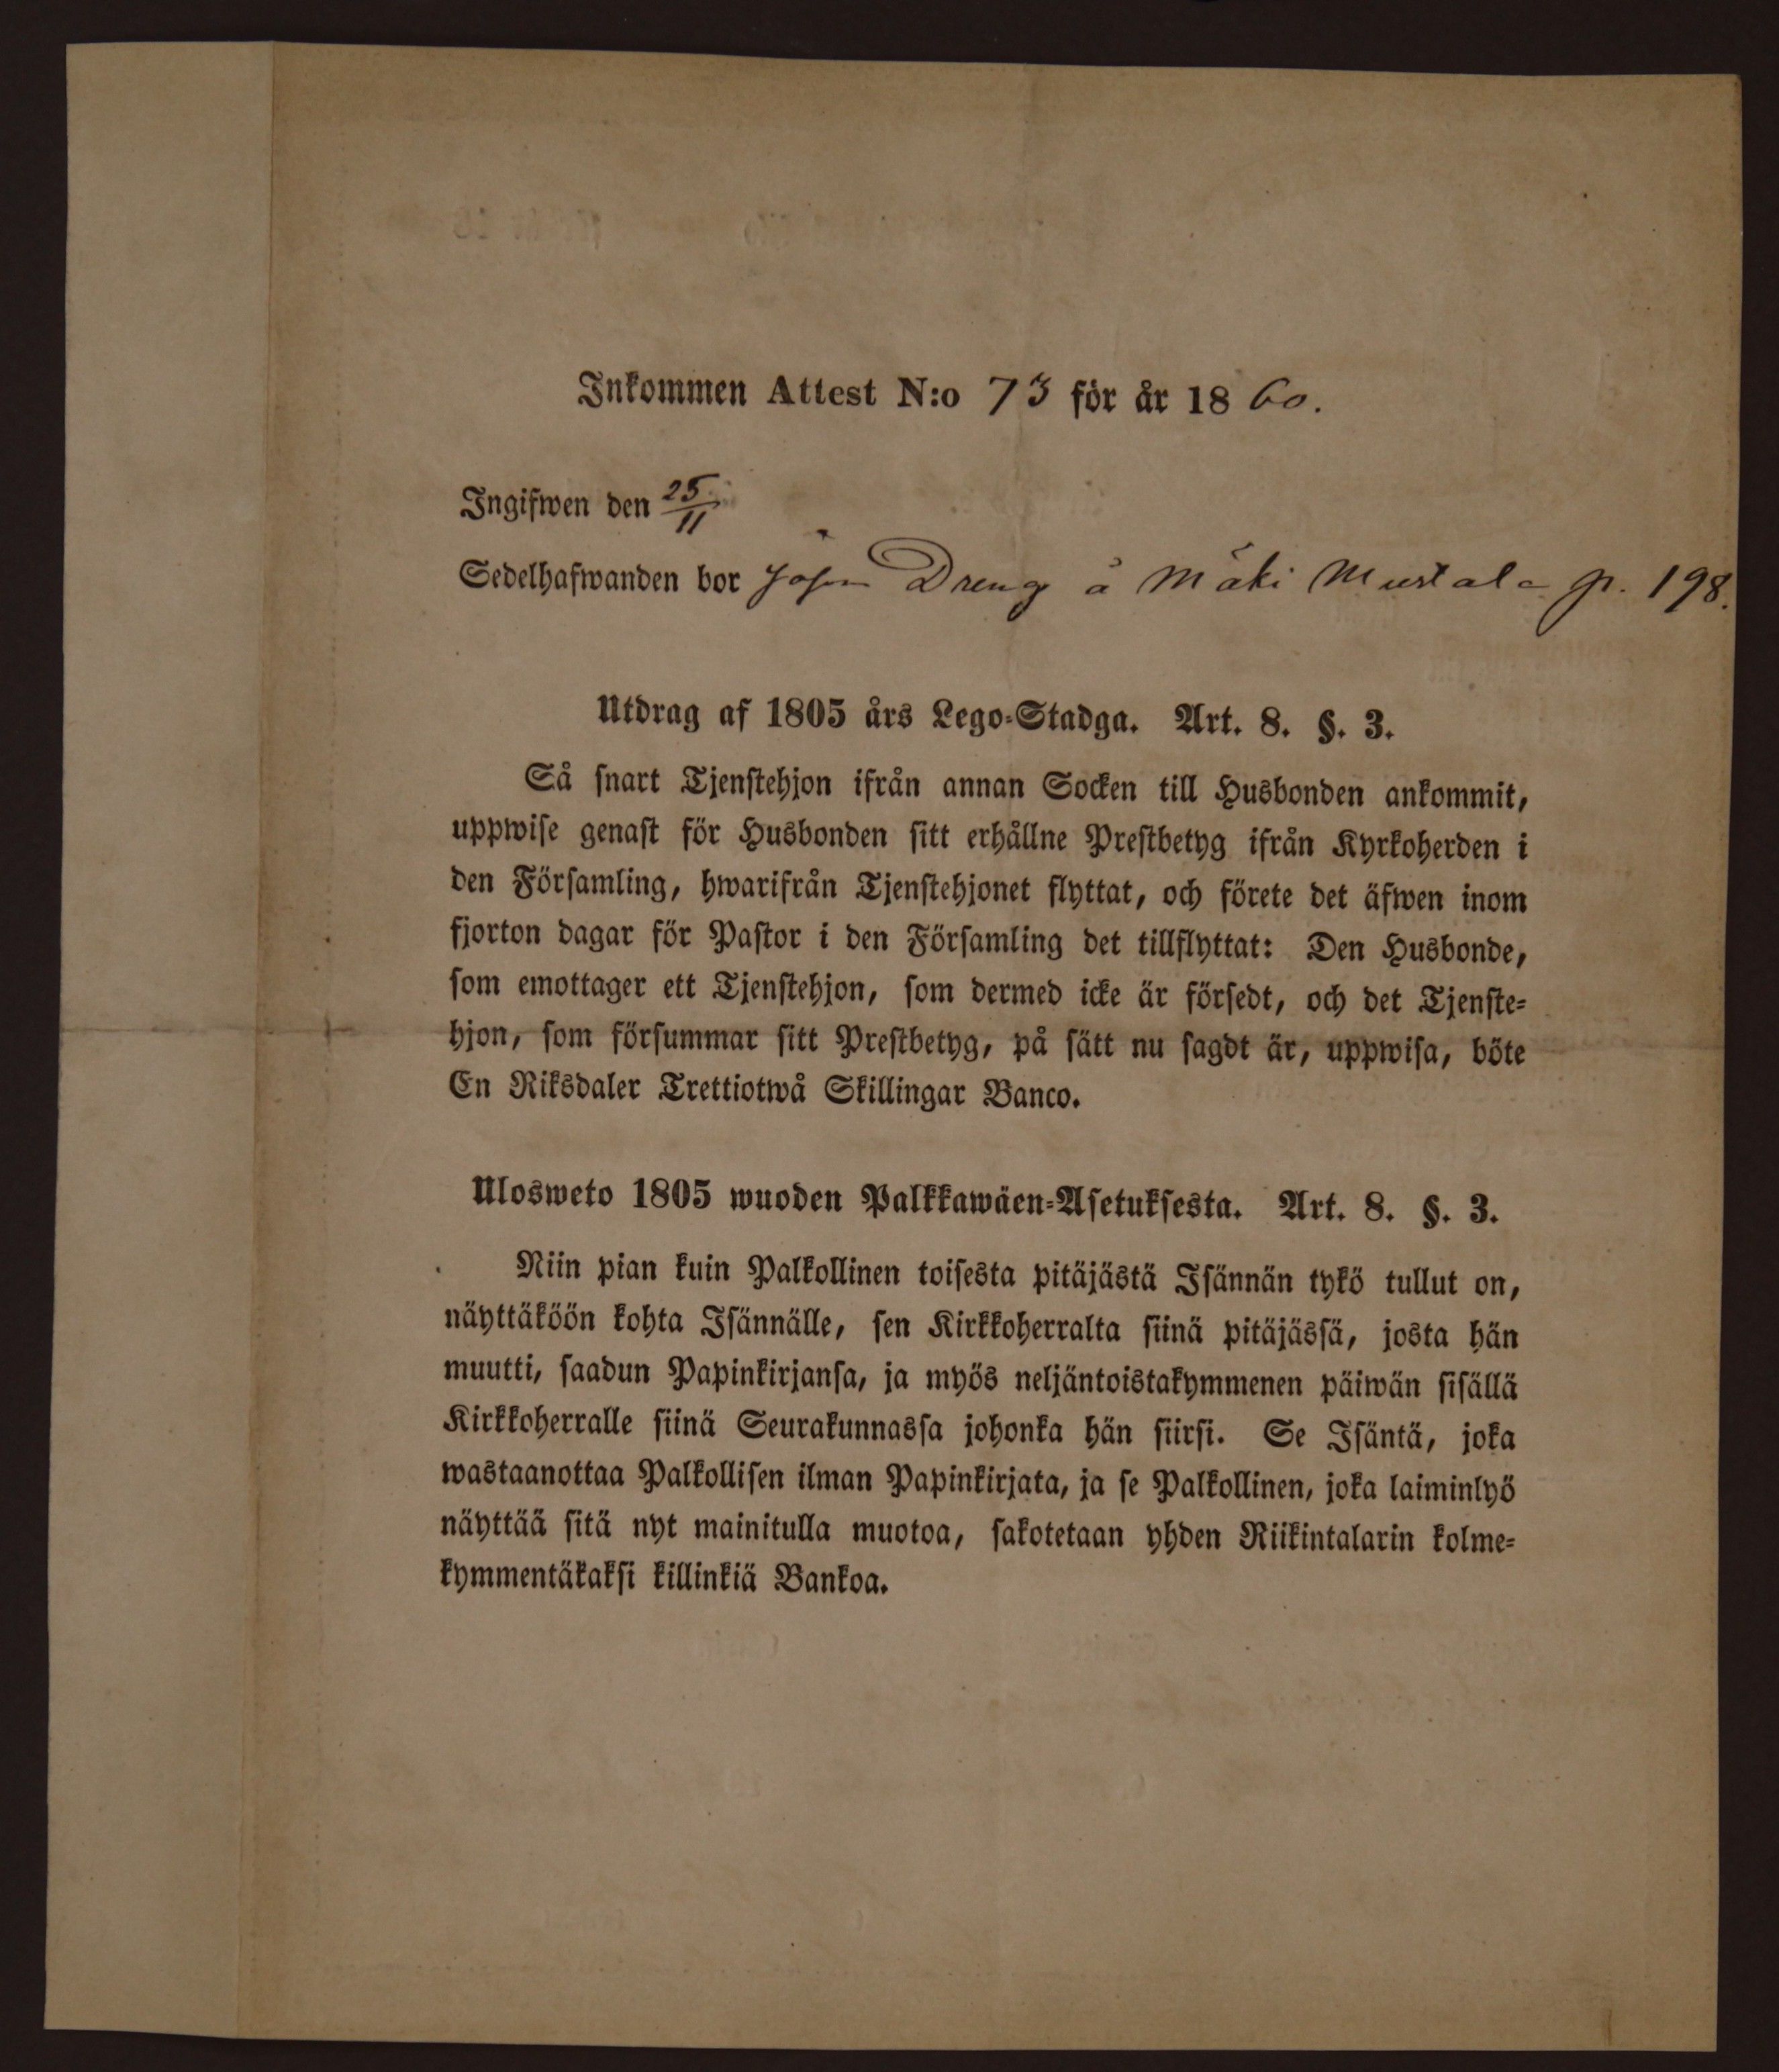 Inkommen Attest N:o 73 för år 1860.
Ingifwen den 25/11
Sedelhafwanden bor såsom Dreng å Mäki Mustala p. 198.
Utdrag af 1805 års Lego-Stadga. Art. 8. §. 3.
Så snart Tjenstehjon ifrån annan Socken till Husbonden ankommit,
uppwise genast för Husbonden sitt erhållne Prestbetyg ifrån Kyrkoherden i
den Församling, hwarifrån Tjenstehjonet flyttat, och förete det äfwen inom
fjorton dagar för Pastor i den Församling det tillflyttat: Den Husbonde,
som emottager ett Tjenstehjon, som dermed icke är försedt, och det Tjenste-
hjon, som försummar sitt Prestbetyg, på sätt nu sagdt är, uppwisa, böte
En Riksdaler Trettiotwå Skillingar Banco.
Ulosweto 1805 wuoden Palkkawäen-Asetuksesta. Art. 8. §. 3.
Niin pian kuin Palkollinen toisesta pitäjästä Isännän tykö tullut on,
näyttäköön kohta Isännälle, sen Kirkkoherralta siinä pitäjässä, josta hän
muutti, saadun Papinkirjansa, ja myös neljäntoistakymmenen päiwän sisällä
Kirkkoherralle siinä Seurakunnassa johonka hän siirsi. Se Isäntä, joka
wastaanottaa Palkollisen ilman Papinkirjata, ja se Palkollinen, joka laiminlyö
näyttää sitä nyt mainitulla muotoa, sakotetaan yhden Riikintalarin kolme-
kymmentäkaksi killinkiä Bankoa.